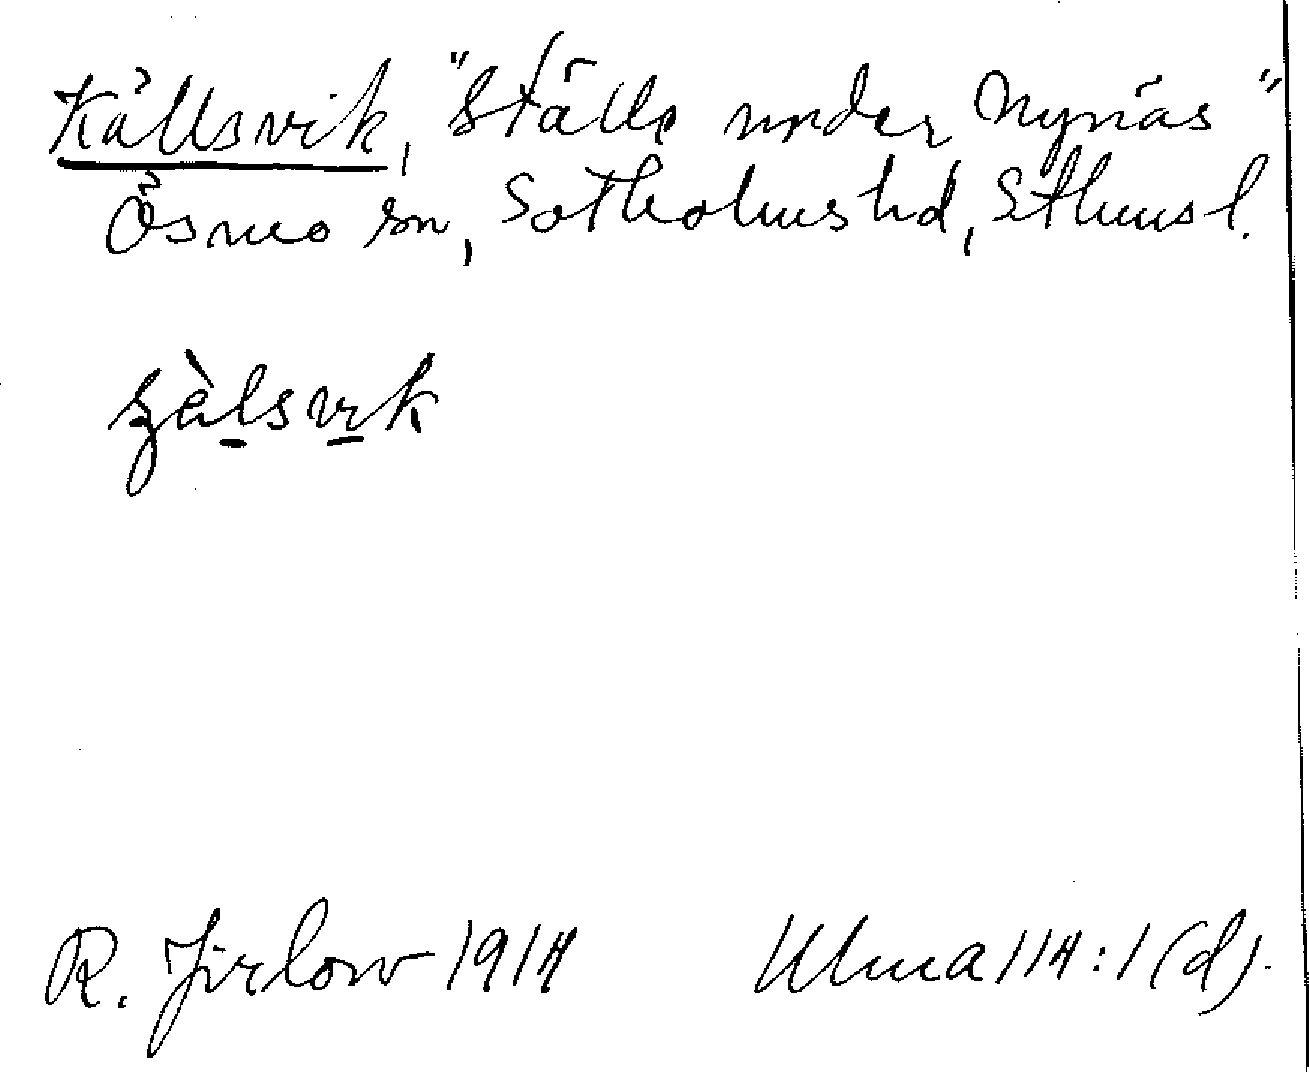 Källsvik, "Ställe under Nynäs"
Ösmo sn, Sotholms hd, Sthms l.
R. Jirlow 1914 Ulma 114:1(d).